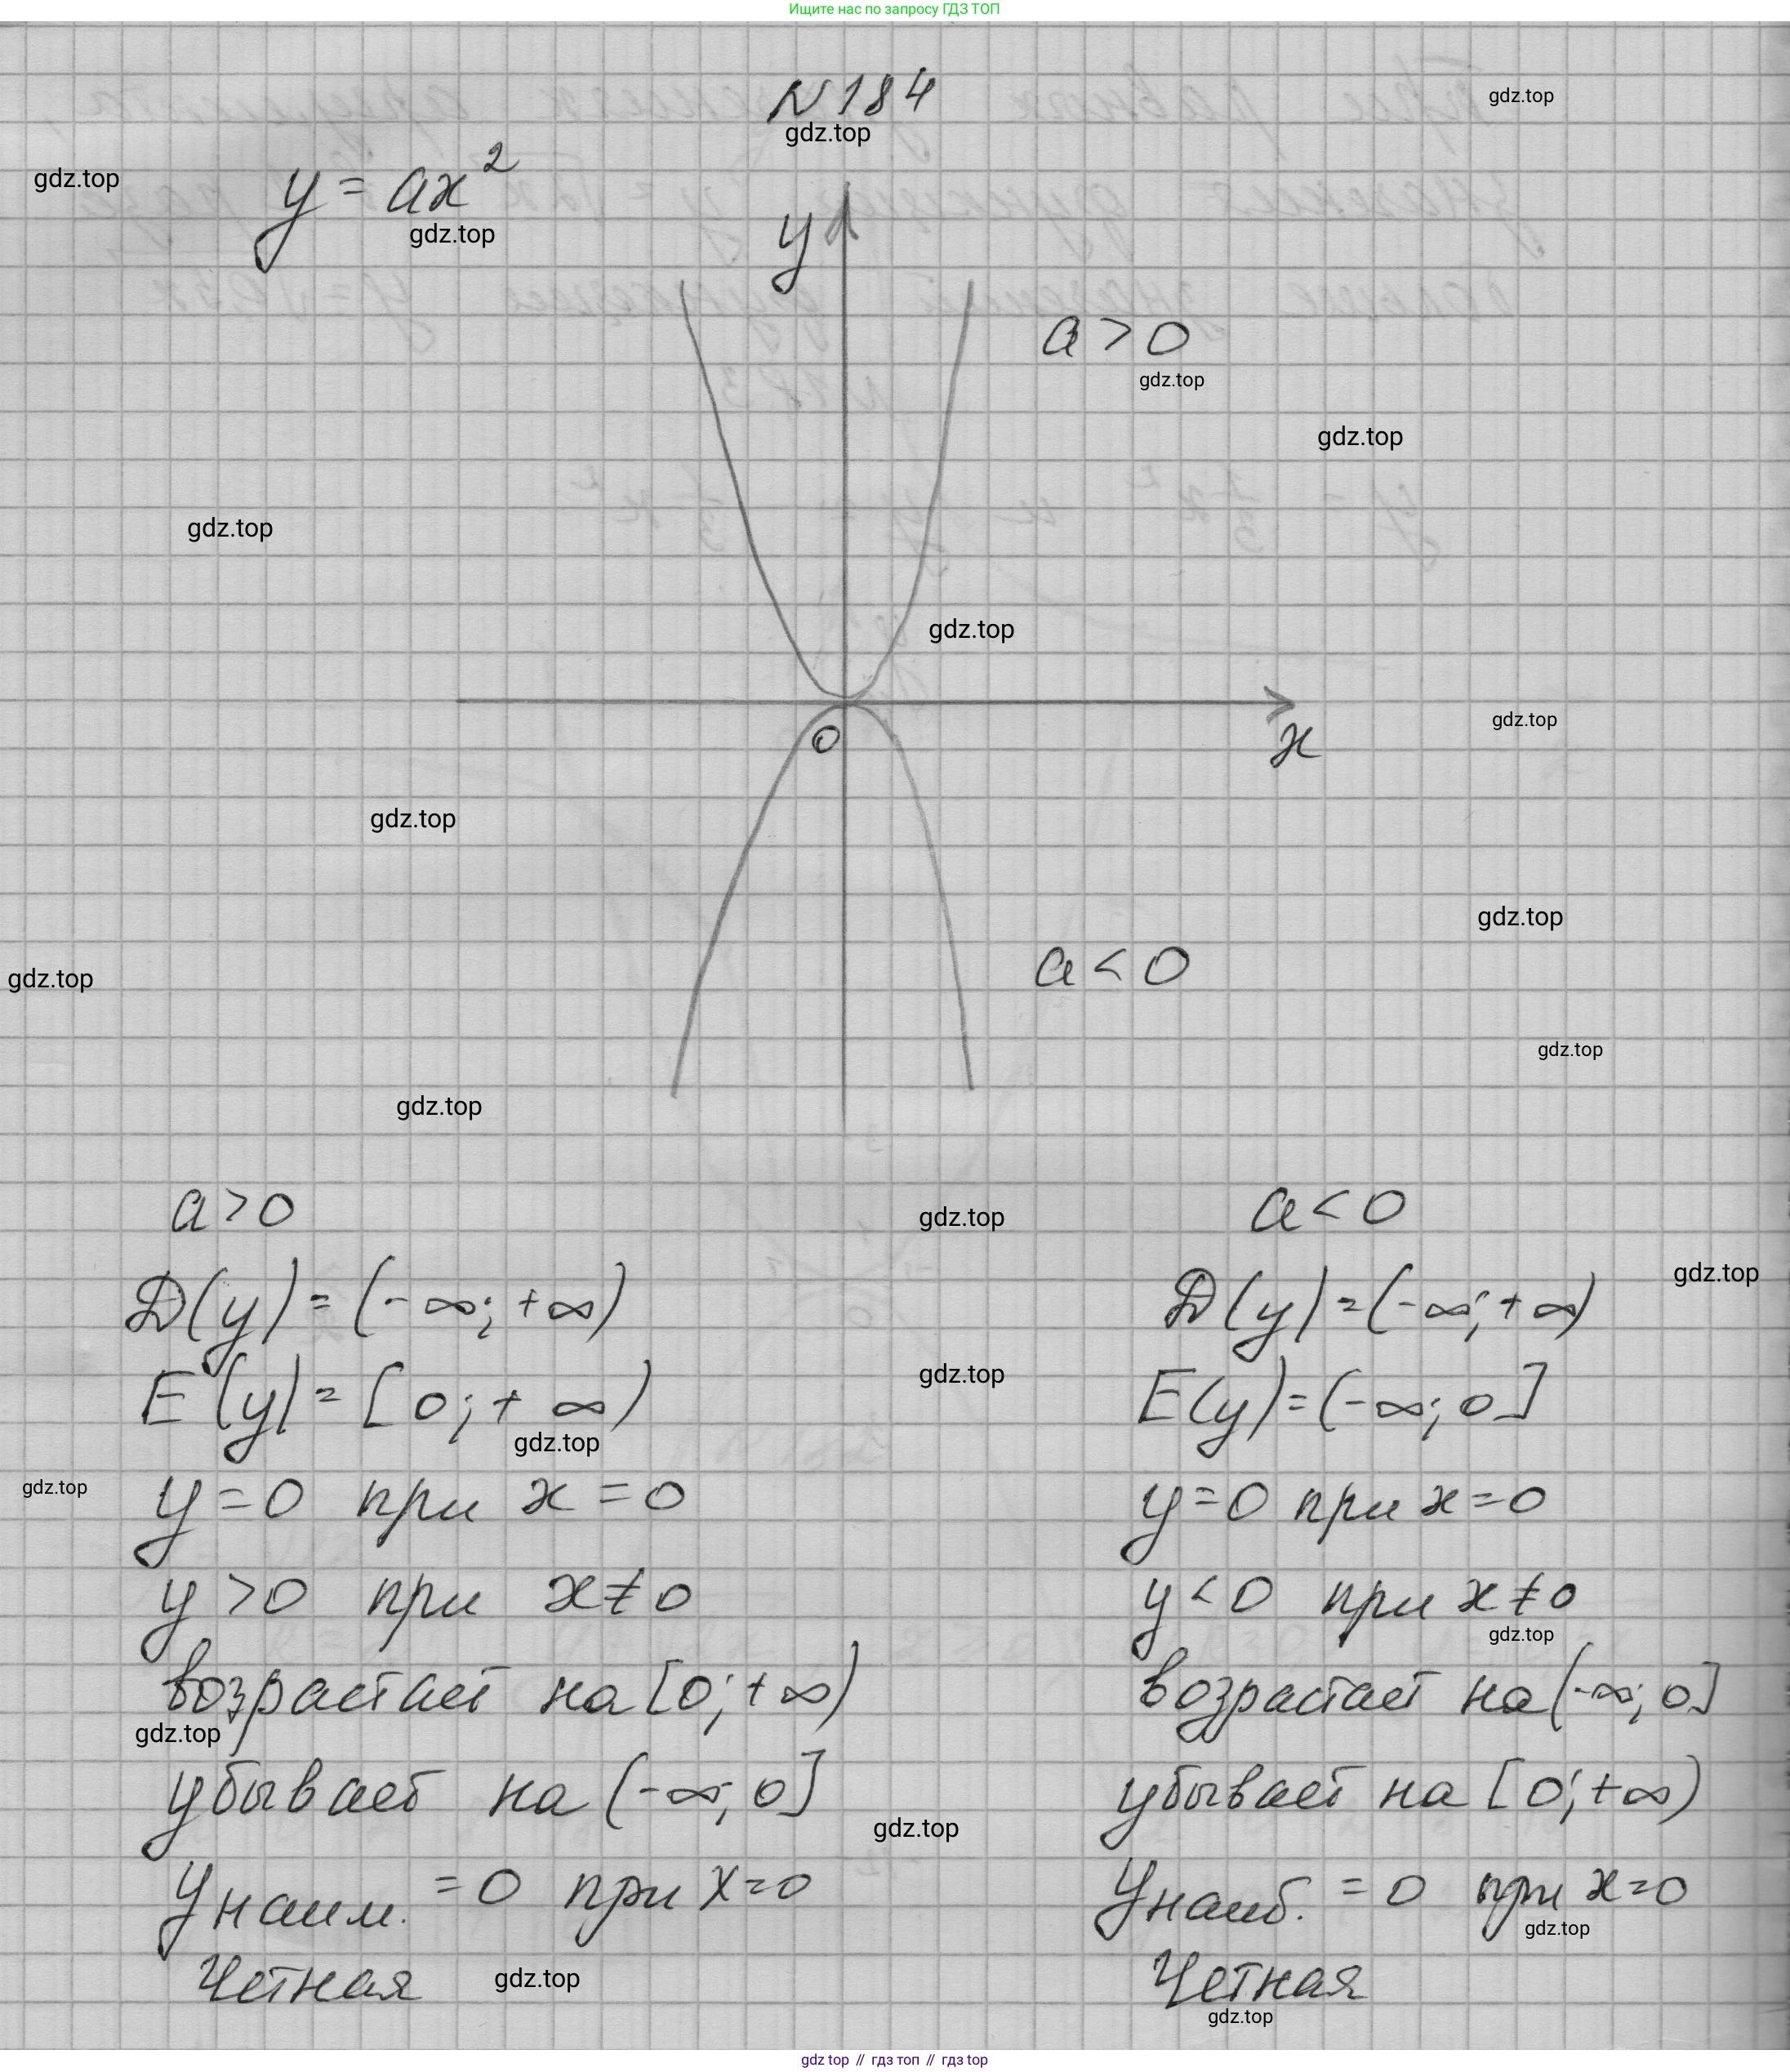 Ищите нас по запросу ГДЗ ТОП
N 184
gdz.top
gdz.top
gdz.top
y = ax²
gdz.top
y
a > 0
gdz.top
gdz.top
gdz.top
gdz.top
0
x
gdz.top
gdz.top
gdz.top
a < 0
gdz.top
gdz.top
gdz.top
a > 0
gdz.top
a < 0
gdz.top
D(y) = (-∞; +∞)
D(y) = (-∞; +∞)
E(y) = [0; +∞)
gdz.top
E(y) = (-∞; 0]
gdz.top
gdz.top
y = 0 при x = 0
y = 0 при x = 0
y > 0 при x ≠ 0
y < 0 при x ≠ 0
gdz.top
возрастает на [0; +∞)
возрастает на (-∞; 0]
gdz.top
убывает на (-∞; 0]
убывает на [0; +∞)
gdz.top
y наим. = 0 при x = 0
y наиб. = 0 при x = 0
gdz.top
Четная
gdz.top
Четная
gdz.top
gdz top // гдз топ // gdz top